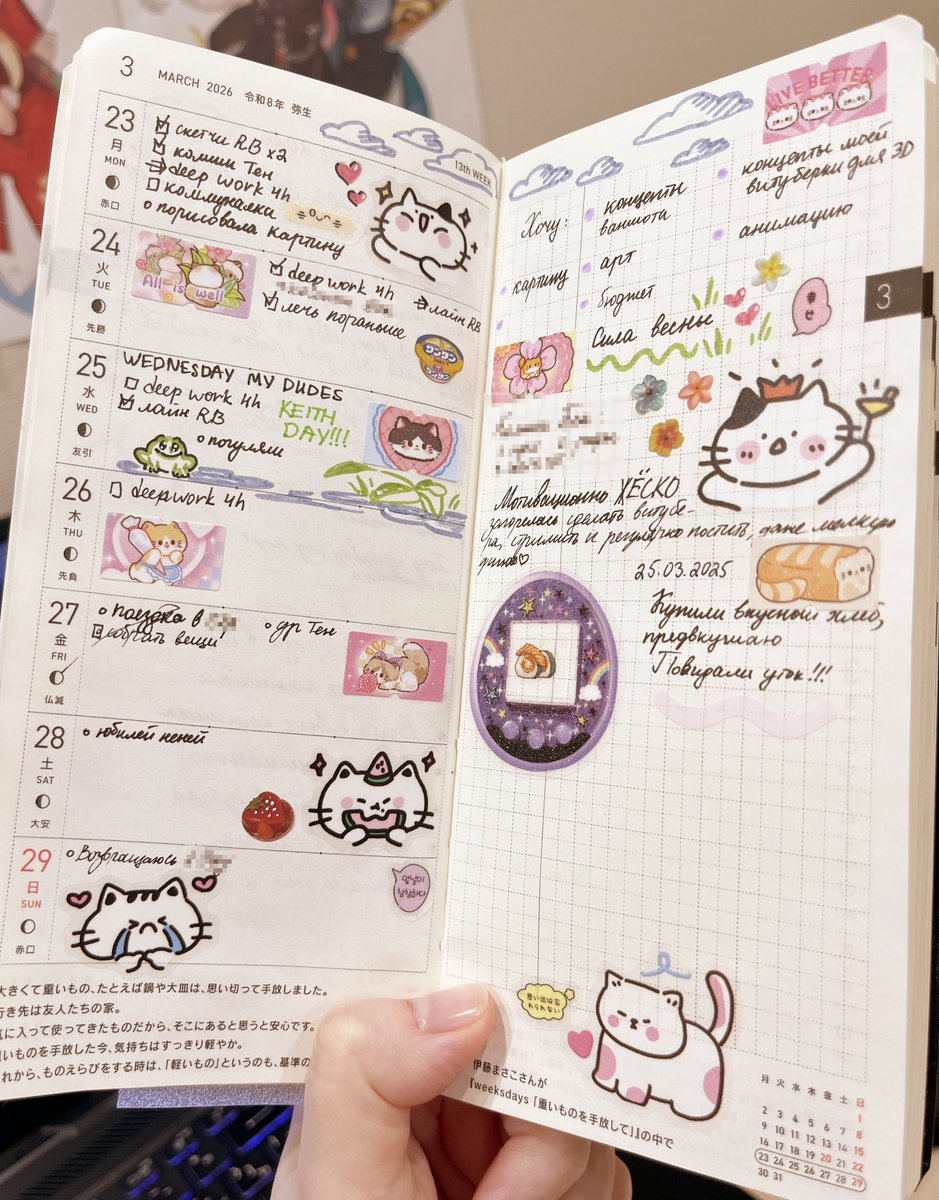 3 MARCH 2026 令和8年 弥生
13th WEEK
23 月 MON 赤口
скетчи RB x2
комиш Тен
deep work 4h
коммуналка
порисовала картину
24 火 TUE 先勝
All is well
deep work 4h
лайн RB
лечь пораньше
25 水 WED 友引
WEDNESDAY MY DUDES
deep work 4h
KEITH
DAY!!!
лайн RB
погуляли
26 木 THU 先負
deep work 4h
27 金 FRI 仏滅
поездка в
др Тен
собрать вещи!
28 土 SAT 大安
юбилей
29 日 SUN 赤口
Возвращаюсь
大きくて重いもの、たとえば鍋や大皿は、思い切って手放しました。
行き先は友人たちの家。
気に入って使ってきたものだから、そこにあると思うと安心です。
重いものを手放した今、気持ちはすっきり軽やか。
れから、ものえらびをする時は、「軽いもの」というのも、基準の
LIVE BETTER
Хочу:
концепты
ваншота
концепты моей
витуберки для 3D
картину
арт
анимацию
бюджет
Сила весны
幸せ
3
Мотивационно ЖЁСКО
загорелась сделать витубе-
ра, стримить и регулярно постить, даже мелкую
25.03.2025
Купили вкусный хлеб,
предвкушаю
Повидали уток!!!
思い出は忘
れられない
伊藤まさこさんが
『weeksdays「重いものを手放して」』の中で
月 火 水 木 金 土 日
1
2 3 4 5 6 7 8
9 10 11 12 13 14 15
16 17 18 19 20 21 22
23 24 25 26 27 28 29
30 31